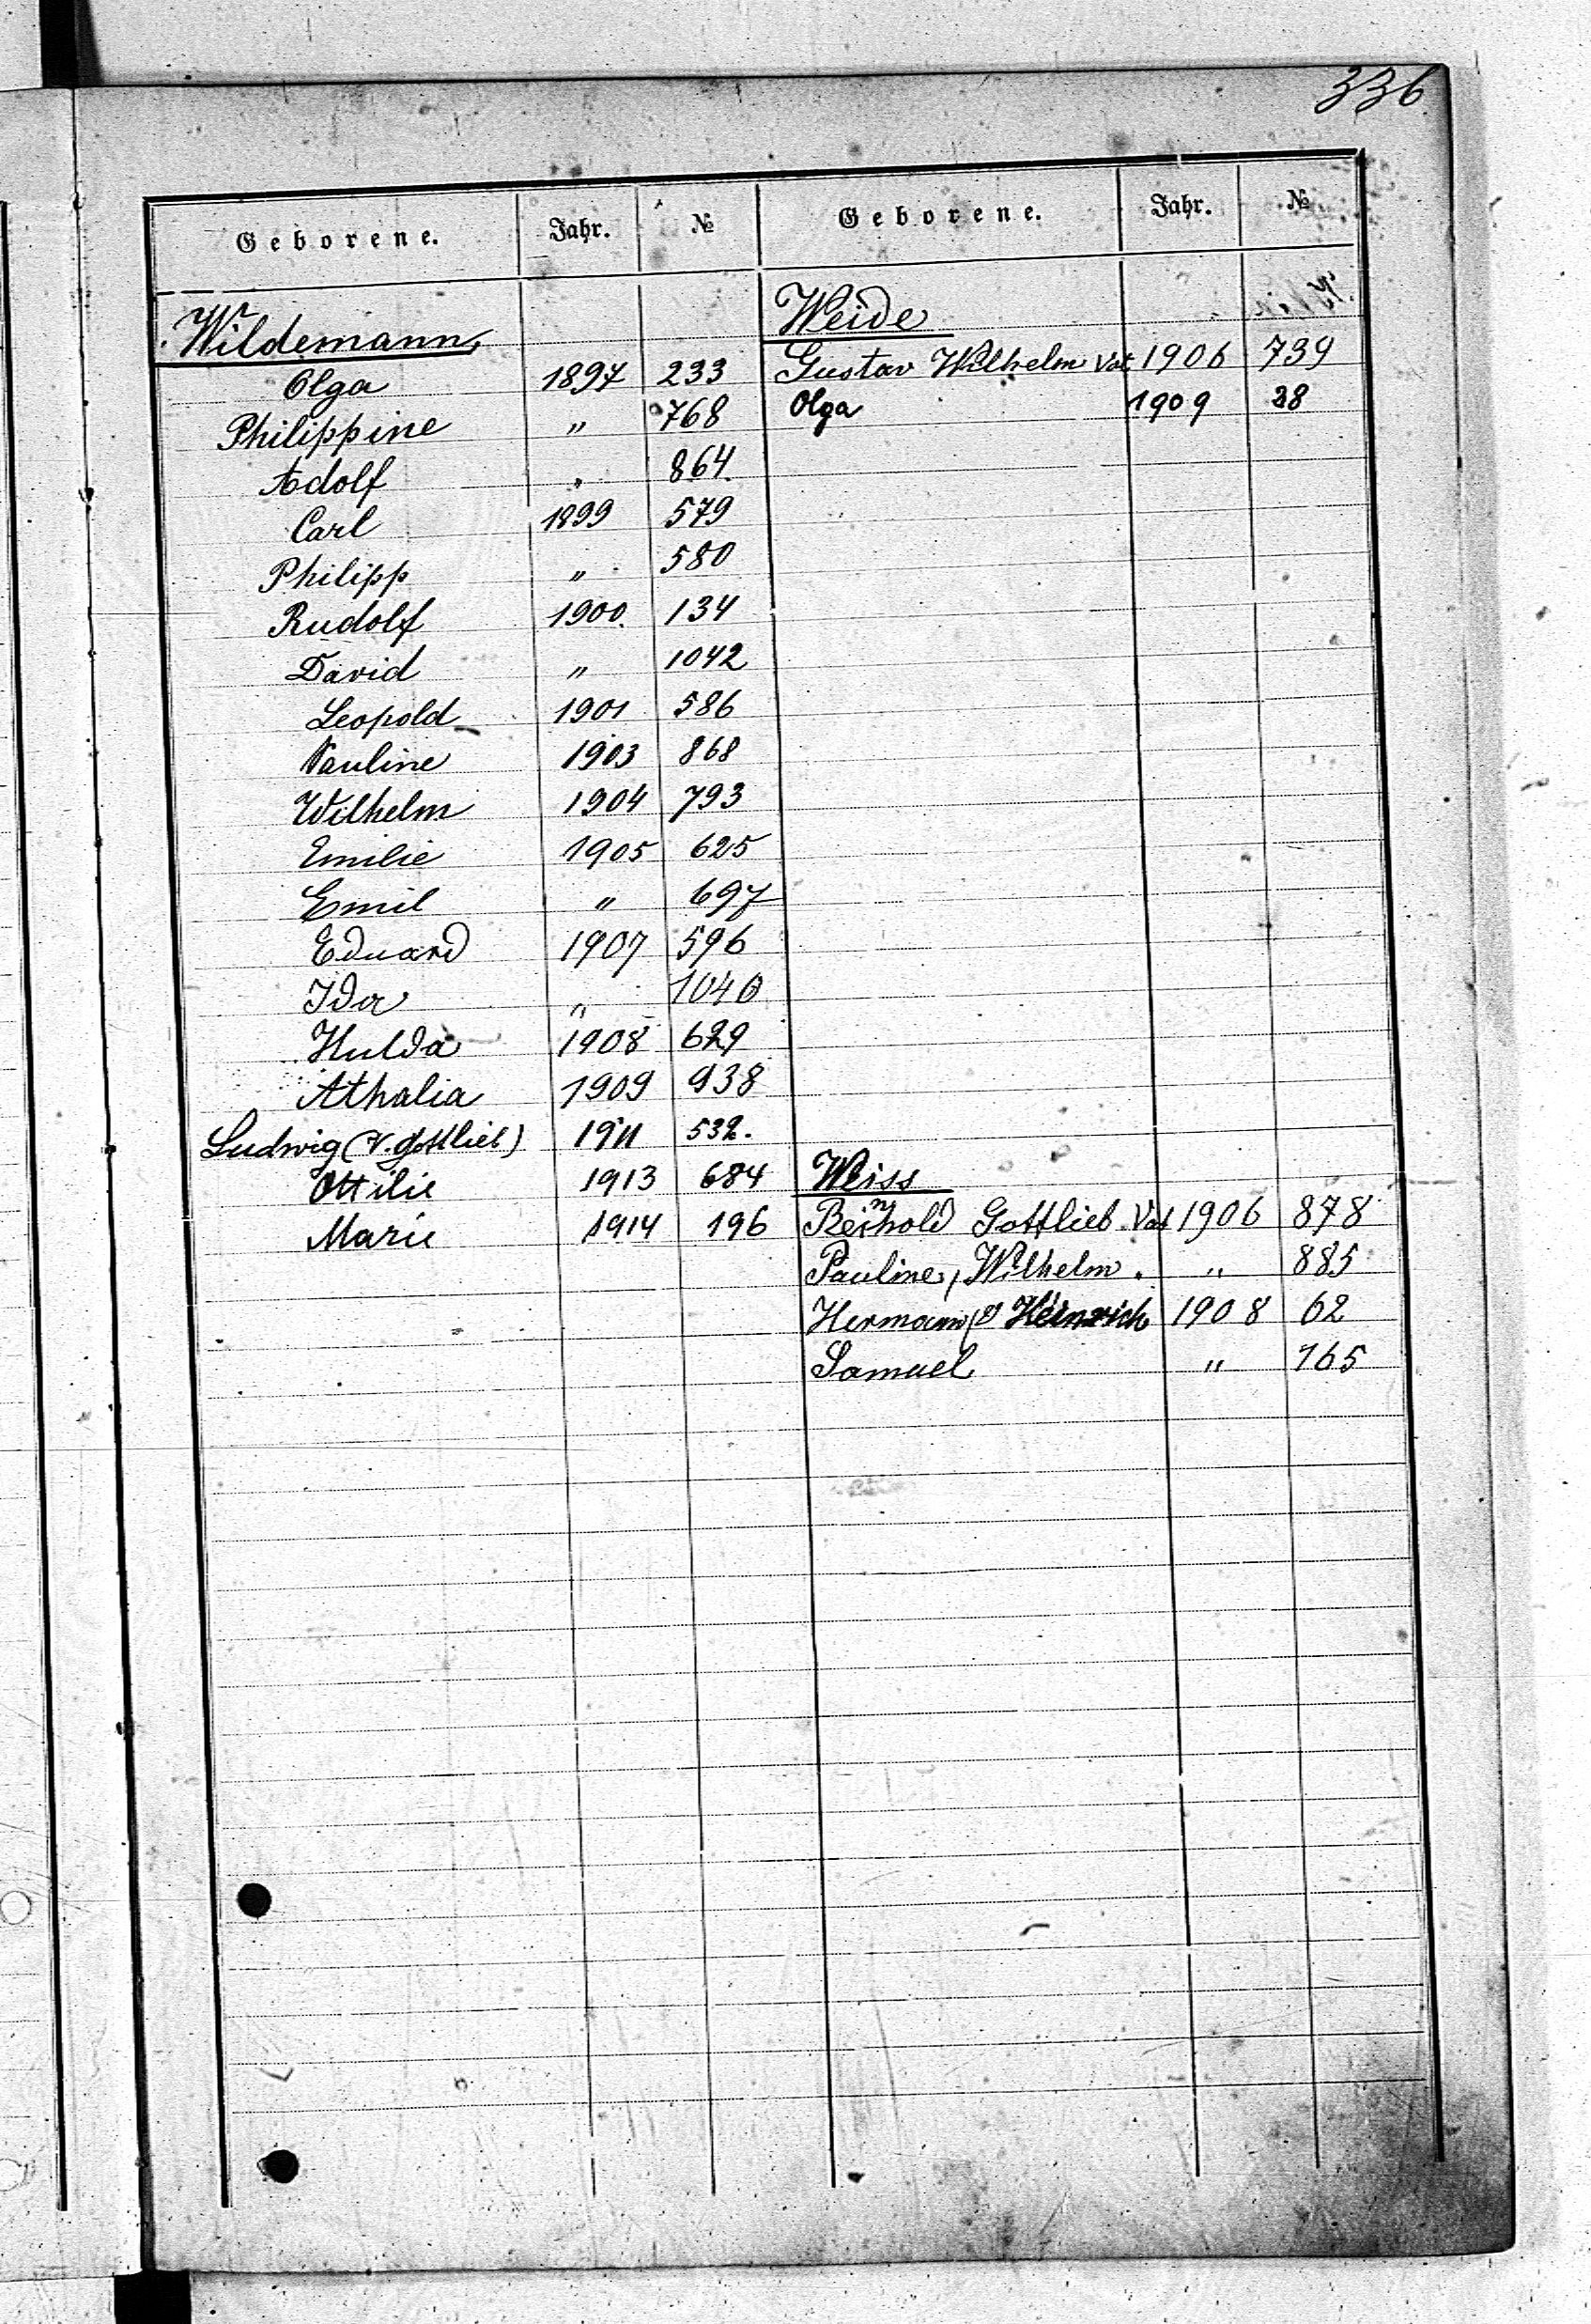 336
Geborene. Jahr. №
Wildemann
Olga 1897 233
Philippine " 768
Adolf " 864.
Carl 1899 579
Philipp " 580
Rudolf 1900. 134
David " 1042
Leopold 1901 586
Pauline 1903 868
Wilhelm 1904 793
Emilie 1905 625
Emil " 697
Eduard 1907 596
Ida " 1040
Hulda 1908 629
Athalia 1909 938
Ludwig (V. Gottlieb) 1911 532.
Ottilie 1913 684
Marie 1914 196
Geborene. Jahr. №
Weide
Gustav Wilhelm Vat. 1906 739
Olga 1909 28
Weiss
Reinhold Gottlieb Vat 1906 878
Pauline, Wilhelm. " 885
Hermann (V Heinrich 1908 62
Samuel " 165